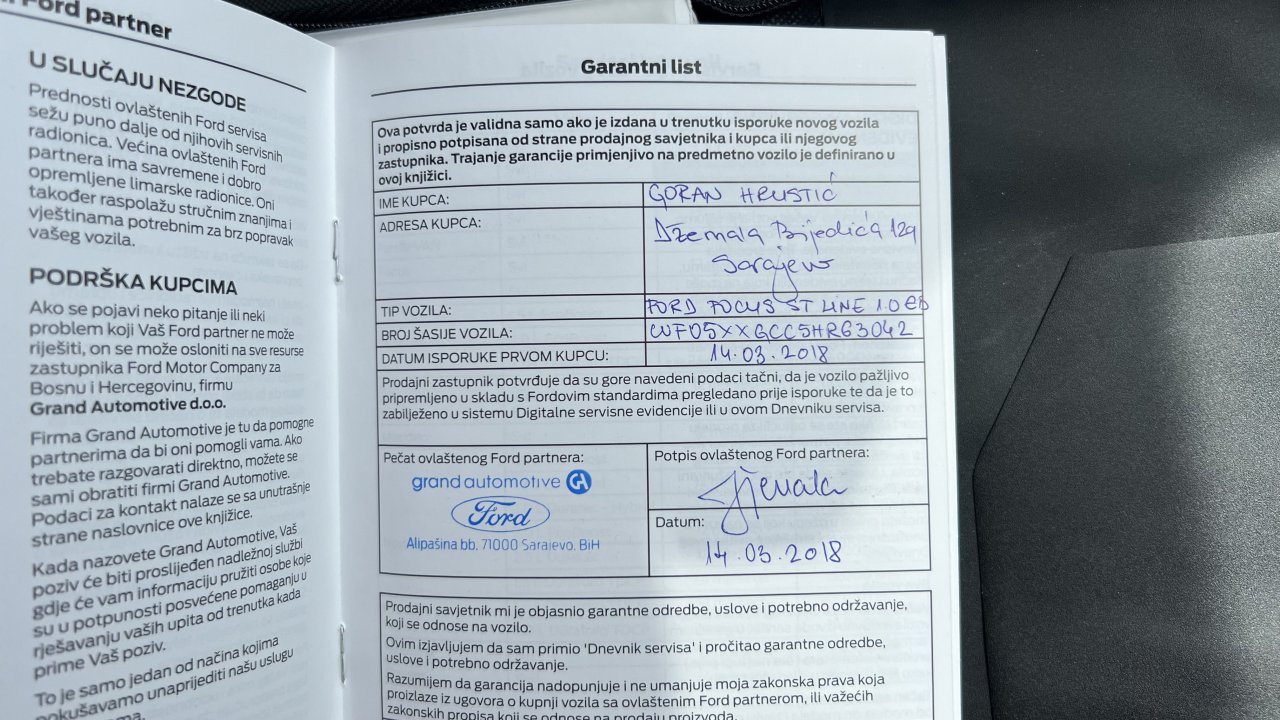 Ford partner
U SLUČAJU NEZGODE
Prednosti ovlaštenih Ford servisa
sežu puno dalje od njihovih servisnih
radionica. Većina ovlaštenih Ford
partnera ima savremene i dobro
opremljene limarske radionice. Oni
također raspolažu stručnim znanjima i
vještinama potrebnim za brz popravak
vašeg vozila.
PODRŠKA KUPCIMA
Ako se pojavi neko pitanje ili neki
problem koji Vaš Ford partner ne može
riješiti, on se može osloniti na sve resurse
zastupnika Ford Motor Company za
Bosnu i Hercegovinu, firmu
Grand Automotive d.o.o.
Firma Grand Automotive je tu da pomogne
partnerima da bi oni pomogli vama. Ako
trebate razgovarati direktno, možete se
sami obratiti firmi Grand Automotive.
Podaci za kontakt nalaze se sa unutrašnje
strane naslovnice ove knjižice.
Kada nazovete Grand Automotive, Vaš
poziv će biti proslijeđen nadležnoj službi
gdje će vam informaciju pružiti osobe koje
su u potpunosti posvećene pomaganju u
rješavanju vaših upita od trenutka kada
prime Vaš poziv.
To je samo jedan od načina kojima
pokušavamo unaprijediti našu uslugu
Garantni list
Ova potvrda je validna samo ako je izdana u trenutku isporuke novog vozila
i propisno potpisana od strane prodajnog savjetnika i kupca ili njegovog
zastupnika. Trajanje garancije primjenjivo na predmetno vozilo je definirano u
ovoj knjižici.
IME KUPCA: GORAN HRUSTIĆ
ADRESA KUPCA: Džemala Bijedića 129
Sarajevo
TIP VOZILA: FORD FOCUS ST LINE 1.0 EB
BROJ ŠASIJE VOZILA: WF05XXGCC5HR63042
DATUM ISPORUKE PRVOM KUPCU: 14.03.2018
Prodajni zastupnik potvrđuje da su gore navedeni podaci tačni, da je vozilo pažljivo
pripremljeno u skladu s Fordovim standardima pregledano prije isporuke te da je to
zabilježeno u sistemu Digitalne servisne evidencije ili u ovom Dnevniku servisa.
Pečat ovlaštenog Ford partnera:
grand automotive GA
Ford
Alipašina bb. 71000 Sarajevo. BiH
Potpis ovlaštenog Ford partnera:
Datum:
14.03.2018
Prodajni savjetnik mi je objasnio garantne odredbe, uslove i potrebno održavanje,
koji se odnose na vozilo.
Ovim izjavljujem da sam primio 'Dnevnik servisa' i pročitao garantne odredbe,
uslove i potrebno održavanje.
Razumijem da garancija nadopunjuje i ne umanjuje moja zakonska prava koja
proizlaze iz ugovora o kupnji vozila sa ovlaštenim Ford partnerom, ili važećih
zakonskih propisa koji se odnose na prodaju proizvoda.